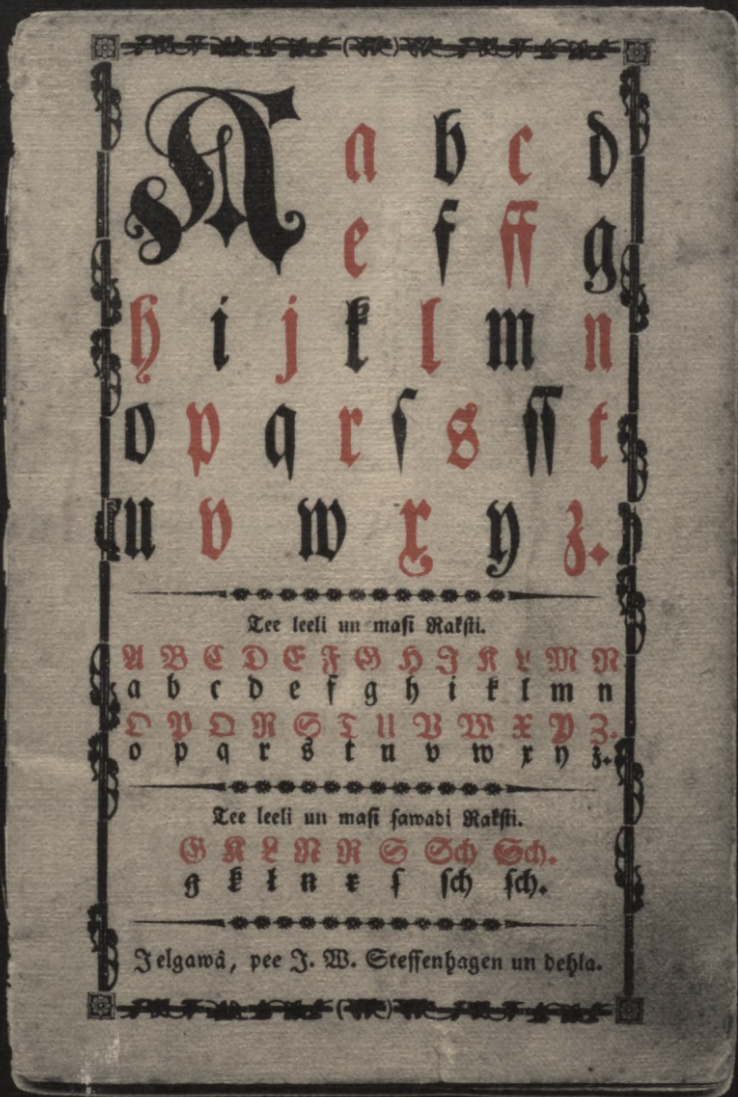 A a b c d
e f ff g
h i j k l m n
o p q r ſ s ſſ t
u v w x y z.
Tee leeli un maſi Rakſti.
A B C D E F G H J K L M N
a b c d e f g h i k l m n
O P Q R S T U V W X Y Z.
o p q r s t u v w x y z.
Tee leeli un maſi ſawadi Rakſti.
G K L N R S Sch Sch.
g k l n r ſ ſch ſch.
Jelgawâ, pee J. W. Steffenhagen un dehla.